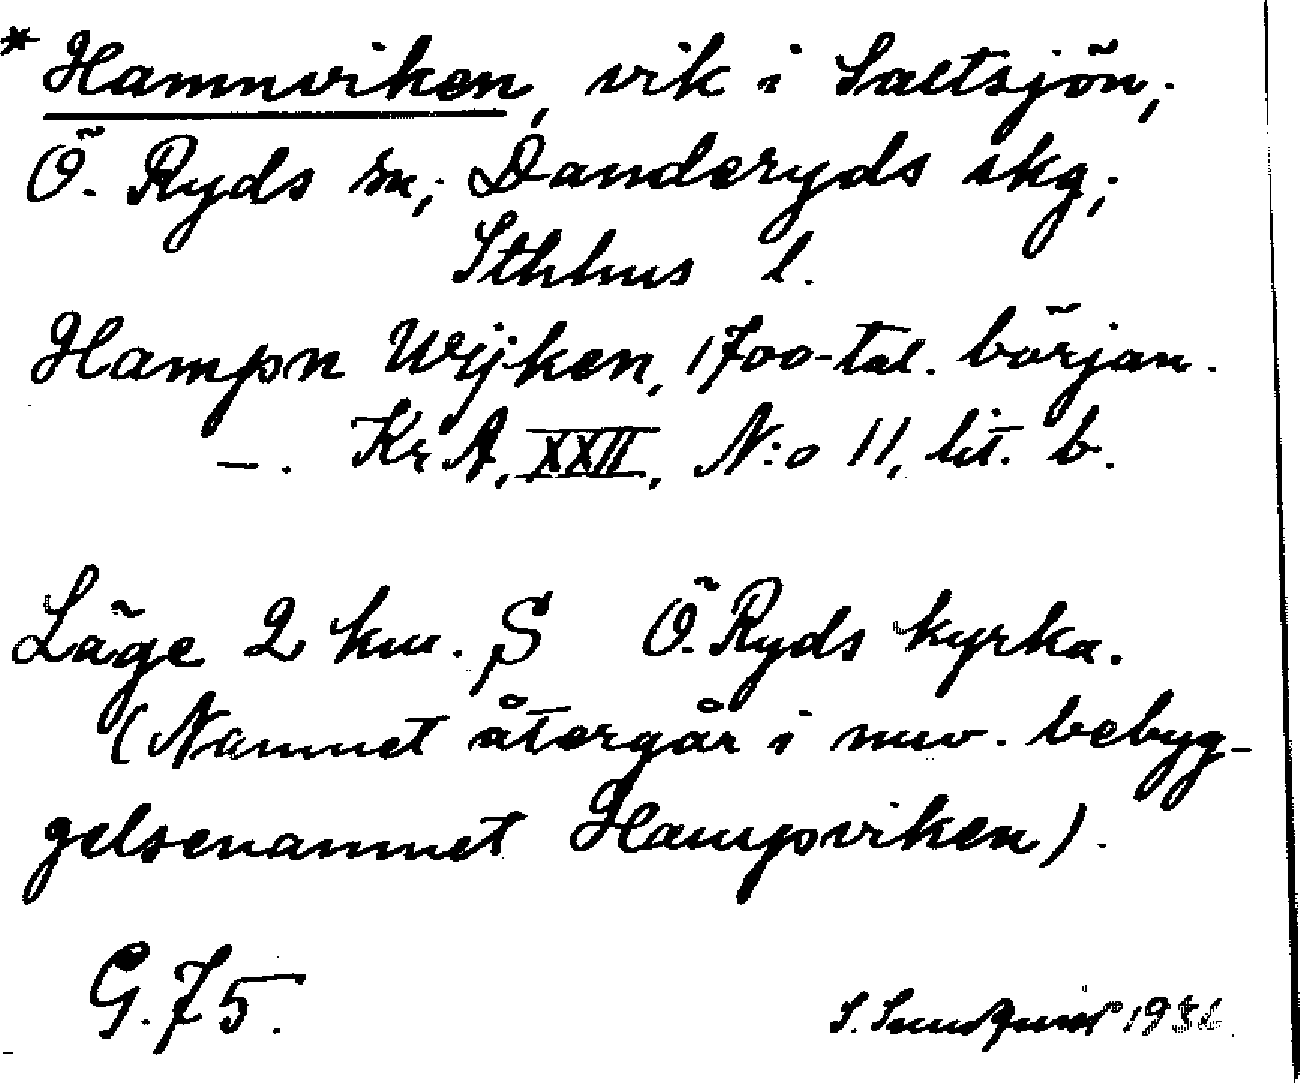 * Hamnviken, vik i Saltsjön;
Ö. Ryds sn; Danderyds skg;
Sthlms l.
Hampn Wijken, 1700-tal. början.
—. Kr A, XXII, N:o 11, lit. b.
Läge 2 km. S Ö. Ryds kyrka.
(Namnet återgår i nuv. bebyg-
gelsenamnet Hampviken).
G. 75.
S. Sundquist